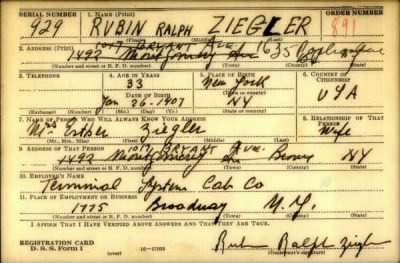 SERIAL NUMBER 1. NAME (Print) ORDER NUMBER
929 RUBIN RALPH ZIEGLER 891
(First) (Middle) (Last)
2. ADDRESS (Print) 1017 BRYANT AVE 1635
1492 Montgomery Ave
(Number and street or R. F. D. number) (Town) (County) (State)
3. TELEPHONE 4. AGE IN YEARS 5. PLACE OF BIRTH 6. COUNTRY OF CITIZENSHIP
33 New York
DATE OF BIRTH
Jan 26 1907 NY USA
(Exchange) (Number) (Mo.) (Day) (Yr.) (State or country)
7. NAME OF PERSON WHO WILL ALWAYS KNOW YOUR ADDRESS 8. RELATIONSHIP OF THAT PERSON
Mrs Esther Ziegler Wife
(Mr., Mrs., Miss) (First) (Middle) (Last)
9. ADDRESS OF THAT PERSON 1017 BRYANT AVE.
1492 Montgomery Ave Bronx NY
(Number and street or R. F. D. number) (Town) (County) (State)
10. EMPLOYER'S NAME
Terminal System Cab Co
11. PLACE OF EMPLOYMENT OR BUSINESS
1775 Broadway N.Y.
(Number and street or R. F. D. number) (Town) (County) (State)
I AFFIRM THAT I HAVE VERIFIED ABOVE ANSWERS AND THAT THEY ARE TRUE.
REGISTRATION CARD
D. S. S. Form 1 (over) 16-17105 Rubin Ralph Ziegler